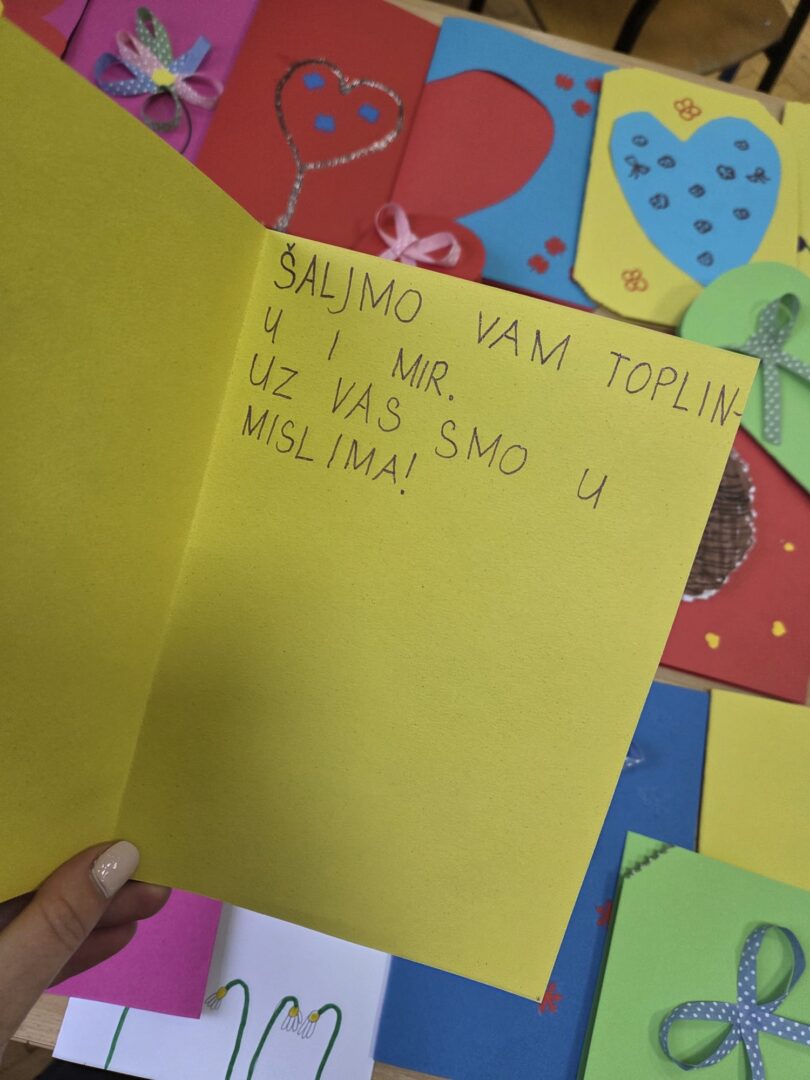 ŠALJMO VAM TOPLIN-
U I MIR.
UZ VAS SMO U
MISLIMA!